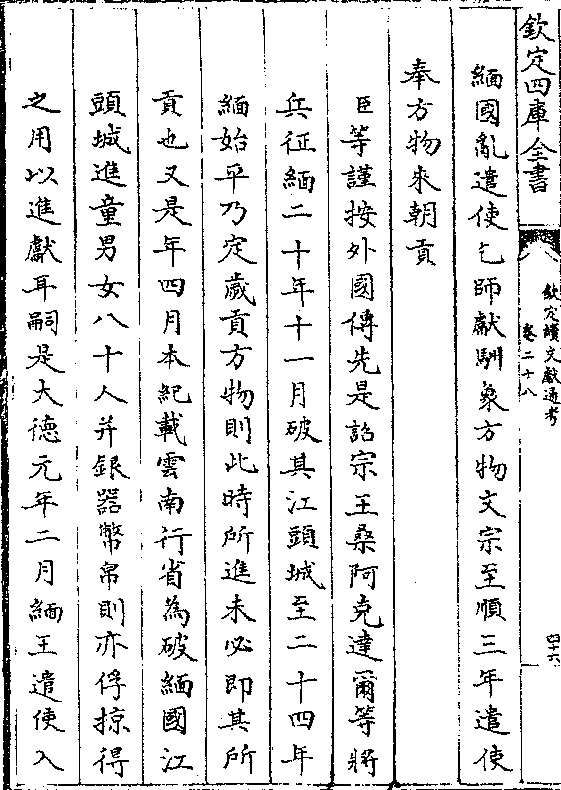 欽定四庫全書
欽定續文獻通考
卷二十八
四十六
緬國亂遣使乞師獻馴象方物文宗至順三年遣使
奉方物來朝貢
臣等謹按外國傳先是詔宗王桑阿克達爾等將
兵征緬二十年十一月破其江頭城至二十四年
緬始平乃定歲貢方物則此時所進未必即其所
貢也又是年四月本紀載雲南行省為破緬國江
頭城進童男女八十人并銀器幣帛則亦俘掠得
之用以進獻耳嗣是大德元年二月緬王遣使入